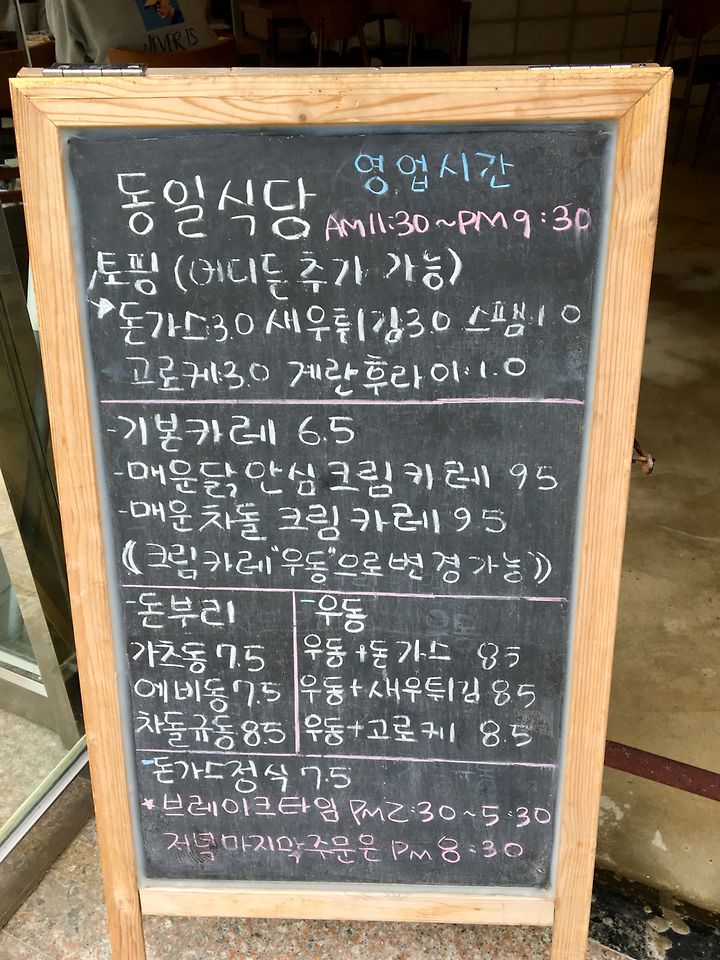 NEVER IS
영업시간
동일식당 AM11:30~PM9:30
토핑 (어디든 추가 가능)
돈가스3.0 새우튀김3.0 스팸:1.0
고로케:3.0 계란후라이:1.0
-기본카레 6.5
-매운닭안심크림카레 95
-매운차돌 크림카레 95
((크림카레"우동"으로변경가능))
-돈부리
가츠동 7.5
에비동 7.5
차돌규동 8.5
-우동
우동+돈가스 8.5
우동+새우튀김 85
우동+고로케 8.5
-돈가스정식 7.5
*브레이크타임 PM2:30~5:30
저녁마지막주문은 PM 8:30